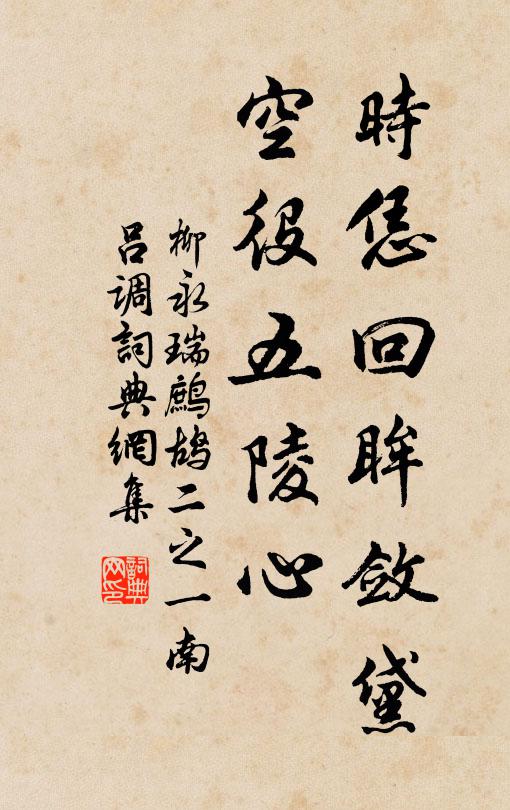 時恁回眸斂黛
空役五陵心
柳永瑞鷓鴣二之一南
呂調詞典網集
詞典网印